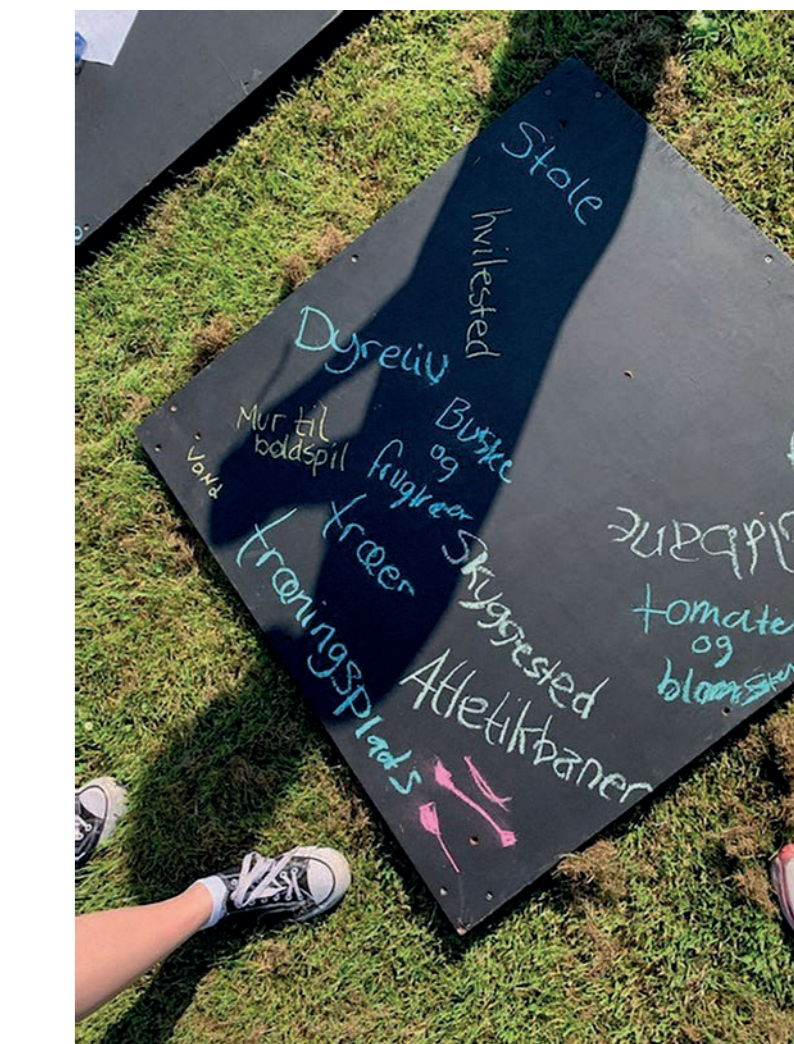 Stole
hvilested
Dyreliv
Mur til
boldspil
Vand
Buske
og
frugtræer
træer
træningsplads
Skyggested
Atletikbaner
tomate
og